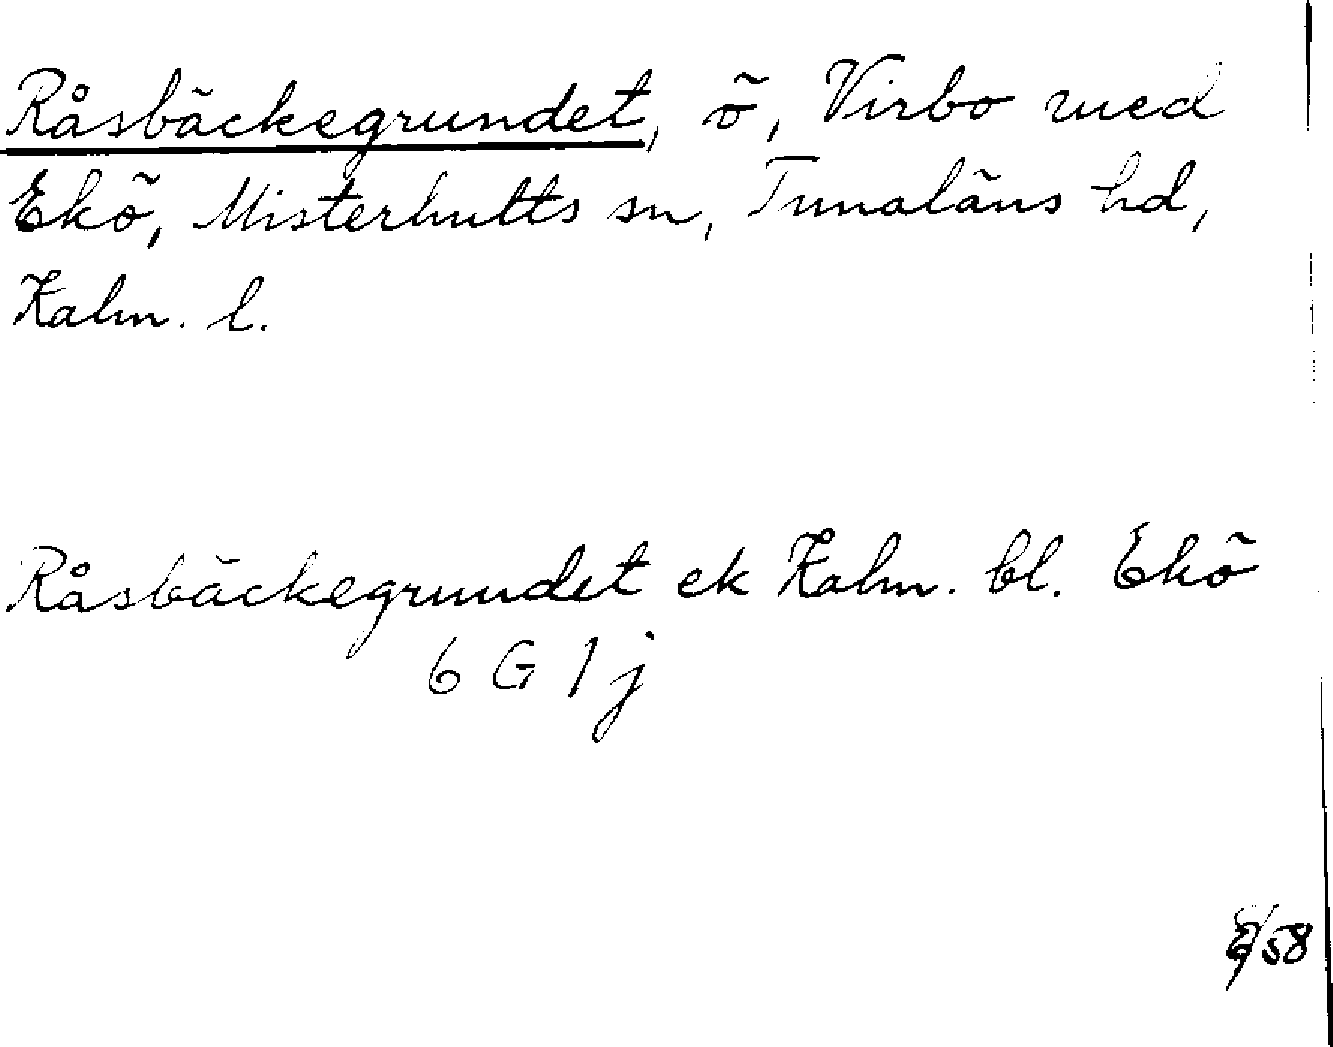 Råsbäckegrundet, ö, Virbo med
Ekö, Misterhults sn, Tunaläns hd,
Kalm. l.
Råsbäckegrundet ek Kalm. bl. Ekö
6 G 1 j
/58